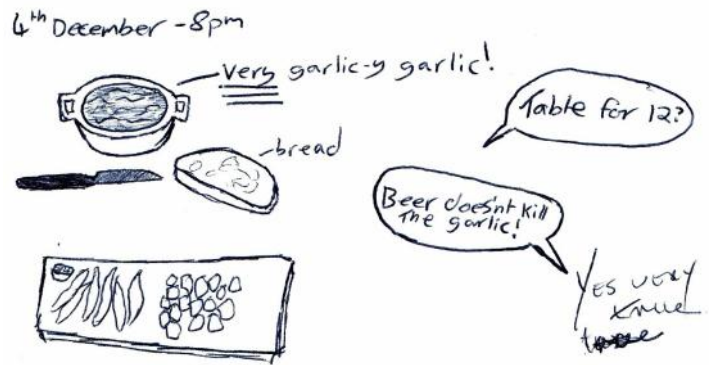 4th December - 8pm
Very garlic-y garlic!
Table for 12?
bread
Beer does'nt kill
The garlic!
YES VERY